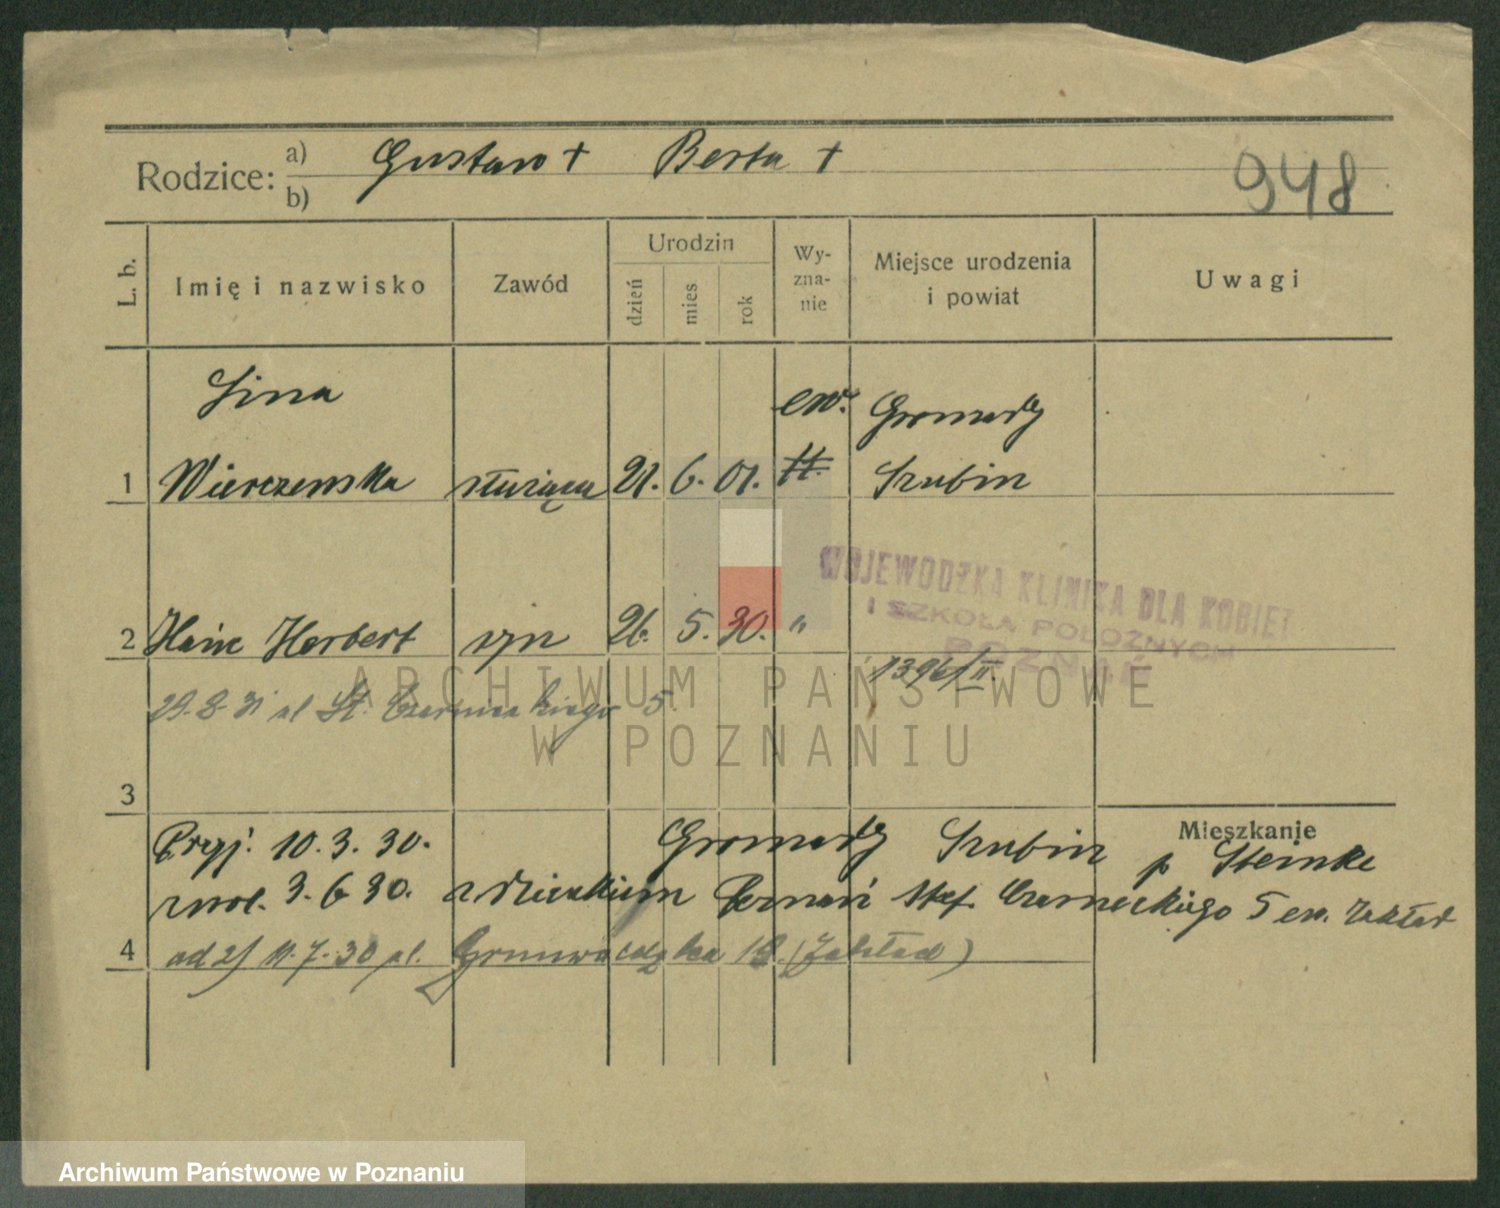 Rodzice: a) Gustaw + Berta +
b)
948
L. b. Imię i nazwisko Zawód Urodzin dzień mies rok Wy-zna-nie Miejsce urodzenia i powiat Uwagi
Lina ew. Gromady
1 Wierczewska służąca 21. 6. 01. Szubin
WOJEWÓDZKA KLINIKA DLA KOBIET
I SZKOŁA POŁOŻNYCH
POZNAŃ
2 Hainz Herbert syn 26. 5. 30. "
1396/II.
29.8.31 ul St. Czarnieckiego 5.
ARCHIWUM PAŃSTWOWE
W POZNANIU
3
Mieszkanie
Przyj. 10.3.30. Gromady Szubin p Steinke
zwol. 3.6 30. z dzieckiem Poznań Stef. Czarneckiego 5 ew. Zakład
4 od 2) 11.7.30 ul. Grunwaldzka 18. (Zakład)
Archiwum Państwowe w Poznaniu